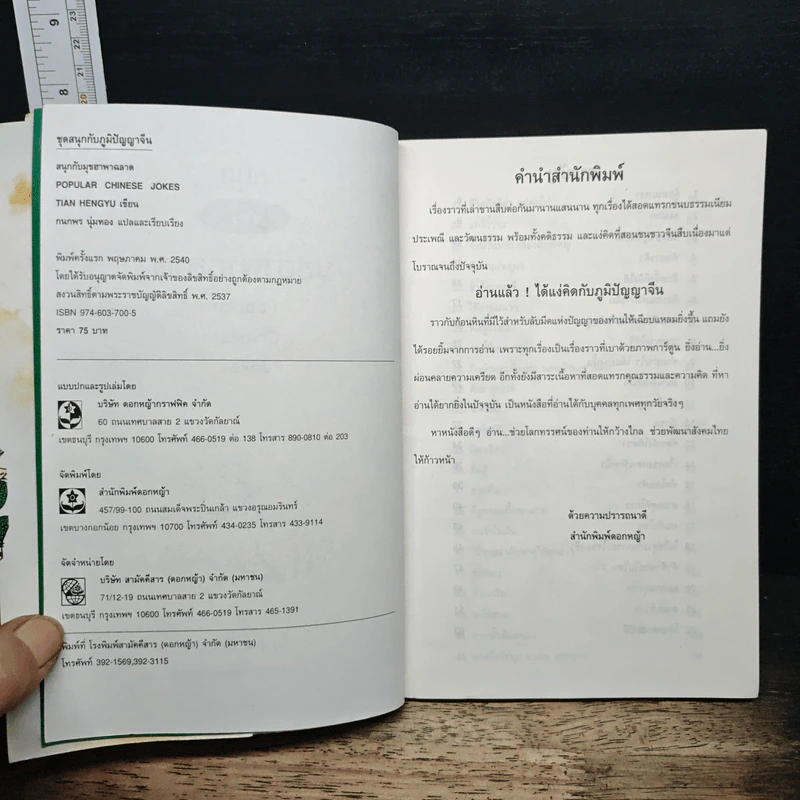 9
8
23
22
21
20
ชุดสนุกกับภูมิปัญญาจีน
สนุกกับมุขฮาพาฉลาด
POPULAR CHINESE JOKES
TIAN HENGYU เขียน
กนกพร นุ่มทอง แปลและเรียบเรียง
พิมพ์ครั้งแรก พฤษภาคม พ.ศ. 2540
โดยได้รับอนุญาตจัดพิมพ์จากเจ้าของลิขสิทธิ์อย่างถูกต้องตามกฎหมาย
สงวนสิทธิ์ตามพระราชบัญญัติลิขสิทธิ์ พ.ศ. 2537
ISBN 974-603-700-5
ราคา 75 บาท
แบบปกและรูปเล่มโดย
บริษัท ดอกหญ้ากราฟฟิค จำกัด
60 ถนนเทศบาลสาย 2 แขวงวัดกัลยาณ์
เขตธนบุรี กรุงเทพฯ 10600 โทรศัพท์ 466-0519 ต่อ 138 โทรสาร 890-0810 ต่อ 203
จัดพิมพ์โดย
สำนักพิมพ์ดอกหญ้า
457/99-100 ถนนสมเด็จพระปิ่นเกล้า แขวงอรุณอมรินทร์
เขตบางกอกน้อย กรุงเทพฯ 10700 โทรศัพท์ 434-0235 โทรสาร 433-9114
จัดจำหน่ายโดย
บริษัท สามัคคีสาร (ดอกหญ้า) จำกัด (มหาชน)
71/12-19 ถนนเทศบาลสาย 2 แขวงวัดกัลยาณ์
เขตธนบุรี กรุงเทพฯ 10600 โทรศัพท์ 466-0519 โทรสาร 465-1391
พิมพ์ที่ โรงพิมพ์สามัคคีสาร (ดอกหญ้า) จำกัด (มหาชน)
โทรศัพท์ 392-1569,392-3115
คำนำสำนักพิมพ์
เรื่องราวที่เล่าขานสืบต่อกันมานานแสนนาน ทุกเรื่องได้สอดแทรกขนบธรรมเนียม
ประเพณี และวัฒนธรรม พร้อมทั้งคติธรรม และแง่คิดที่สอนชนชาวจีนสืบเนื่องมาแต่
โบราณจนถึงปัจจุบัน
อ่านแล้ว ! ได้แง่คิดกับภูมิปัญญาจีน
ราวกับก้อนหินที่มีไว้สำหรับลับมีดแห่งปัญญาของท่านให้เฉียบแหลมยิ่งขึ้น แถมยัง
ได้รอยยิ้มจากการอ่าน เพราะทุกเรื่องเป็นเรื่องราวที่เบาด้วยภาพการ์ตูน ยิ่งอ่าน...ยิ่ง
ผ่อนคลายความเครียด อีกทั้งยังมีสาระเนื้อหาที่สอดแทรกคุณธรรมและความคิด ที่หา
อ่านได้ยากยิ่งในปัจจุบัน เป็นหนังสือที่อ่านได้กับบุคคลทุกเพศทุกวัยจริงๆ
หาหนังสือดีๆ อ่าน...ช่วยโลกทรรศน์ของท่านให้กว้างไกล ช่วยพัฒนาสังคมไทย
ให้ก้าวหน้า
ด้วยความปรารถนาดี
สำนักพิมพ์ดอกหญ้า